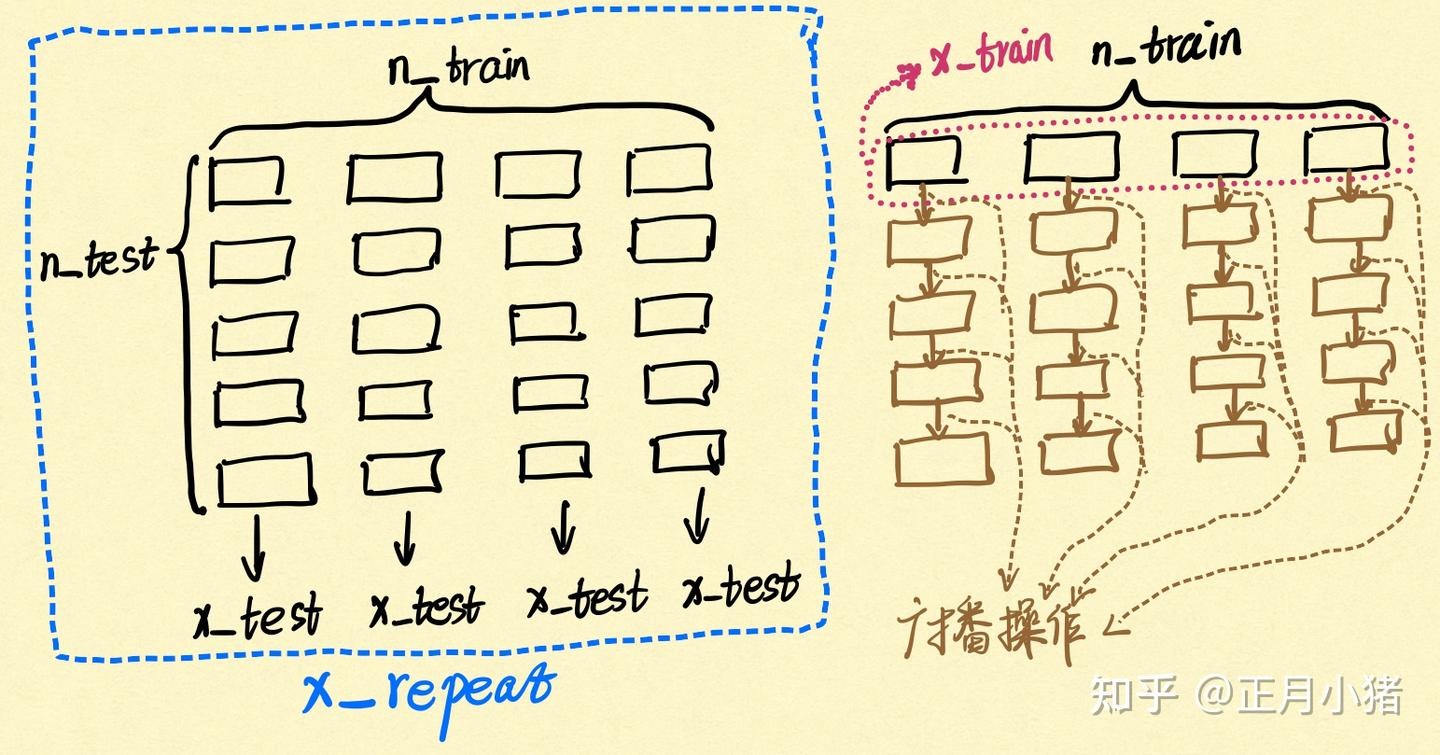 n_train
n_test
x_test x_test x_test x_test
x_repeat
x_train n_train
广播操作
知乎 @正月小猪